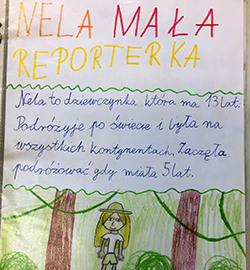 NELA MAŁA
REPORTERKA
Nela to dziewczynka która ma 13 lat.
Podróżuje po świecie i była na
wszystkich kontynentach. Zaczęła
podróżować gdy miała 5 lat.